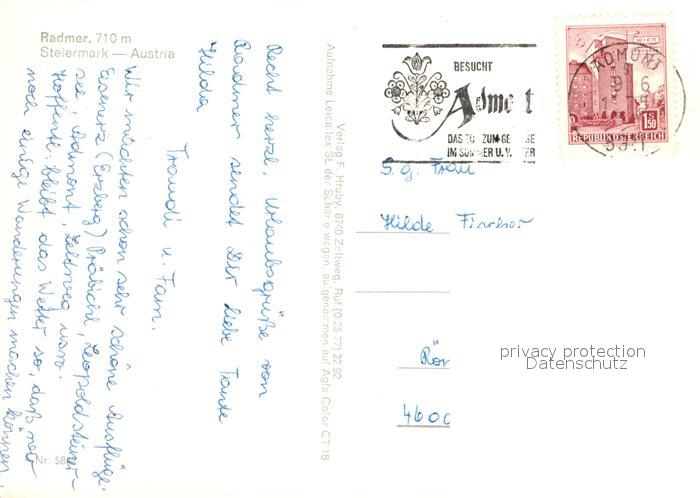 Radmer, 710 m
Steiermark — Austria
Recht herzl. Urlaubsgrüße von
Radmer sendet Dir liebe Tante
Hilda
Traudi u. Fam.
Wir machten schon sehr schöne Ausflüge.
Eisenerz (Erzberg) Präbichl, Leopoldsteiner-
see, Admont, Zeltweg usw.
Hoffentl. bleibt das Wetter so, daß wir
noch einige Wanderungen machen können.
Nr. 58
Verlag F. Hruby, 8740 Zeltweg, Ruf (0 35 77) 22 92
Aufnahme Leicaflex SL der Schärfe wegen, aufgenommen auf Agfa Color CT 18
BESUCHT
Admont
DAS ZUM GE SE
IM SOMMER U.
ADMONT
WIEN
1.50
REPUBLIK ÖSTERREICH
S. g. Frau
Hilde Fischer
Rör
4600
privacy protection
Datenschutz